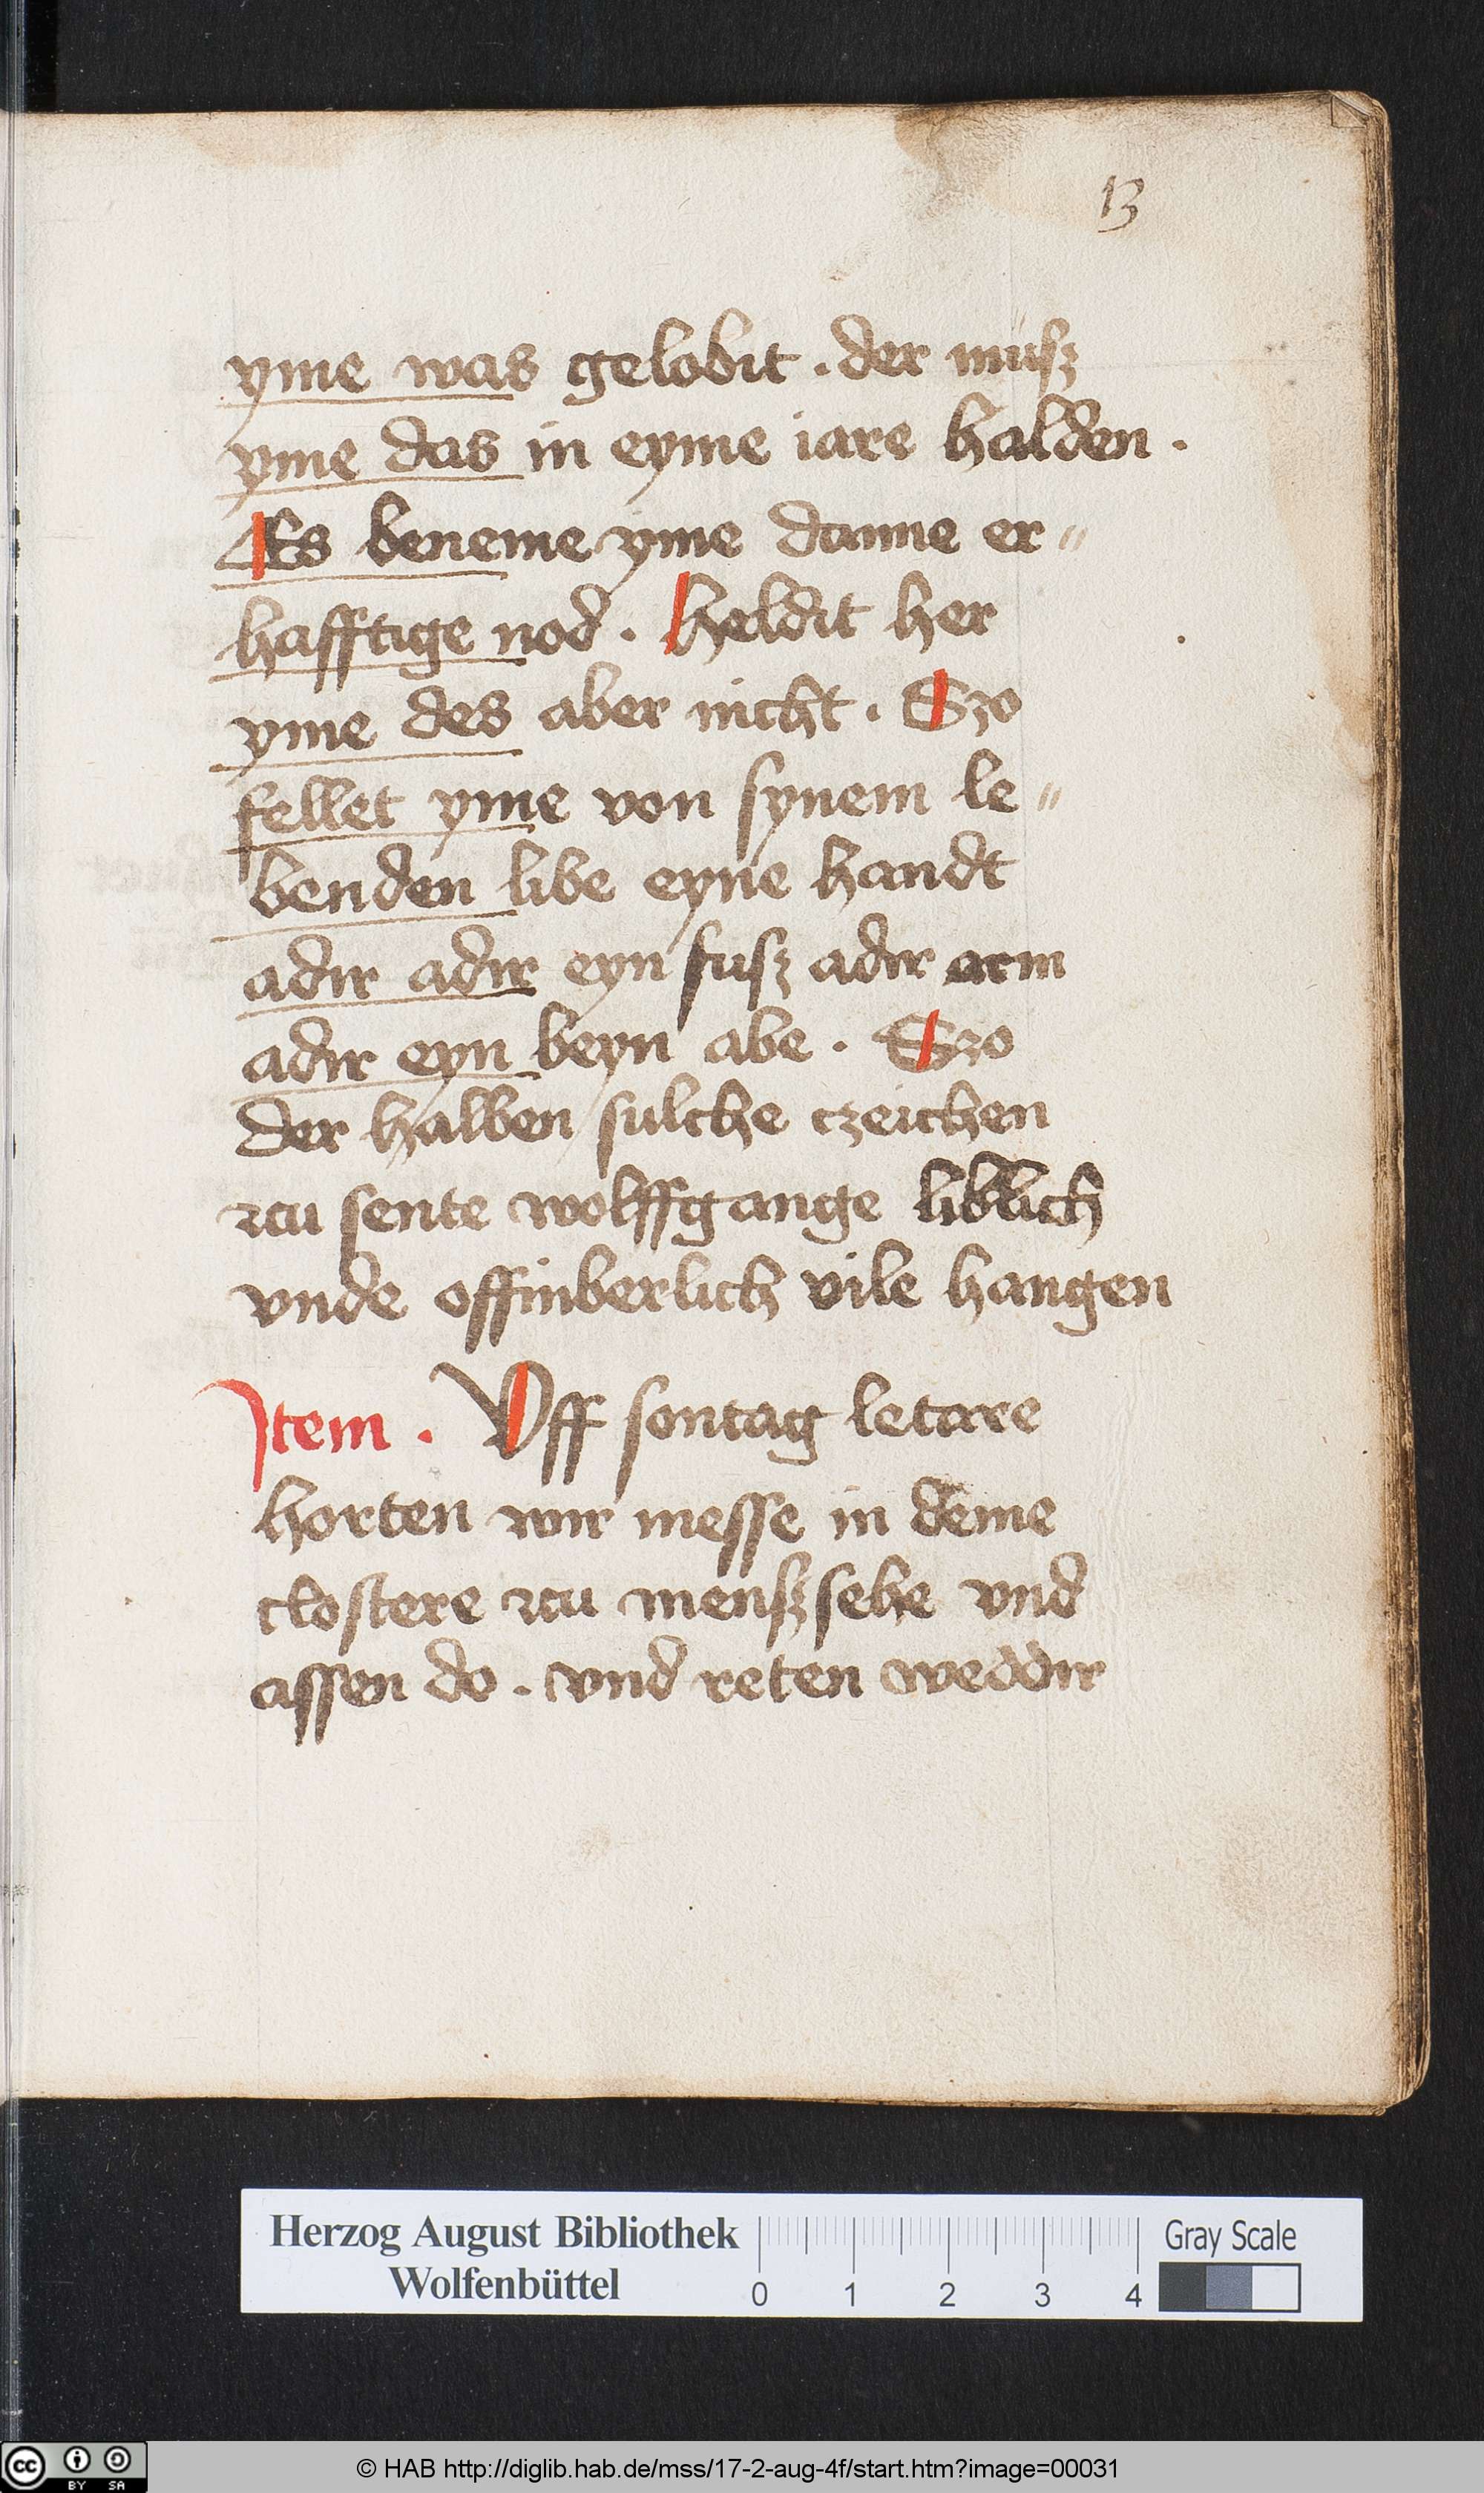 13
yme was gelobit . der muſz
yme das in eyme iare halden .
Es beneme yme danne er〃
hafftige nod . heldit her
yme des aber nicht . Szo
fellet yme von ſynem le〃
benden libe eyne handt
adir adir eyn fuſz adir arm
adir eyn beyn abe . Szo
der halben ſulche czeichen
zcu ſente wolffgange liblich
vnde offinberlich vile hangen
Item . Vff ſontag letare
horten wir meſſe in deme
cloſtere zcu menſzſehe vnd
aſſen do . vnd reten weddir
Herzog August Bibliothek
Wolfenbüttel
0 1 2 3 4
Gray Scale
cc BY SA
© HAB http://diglib.hab.de/mss/17-2-aug-4f/start.htm?image=00031